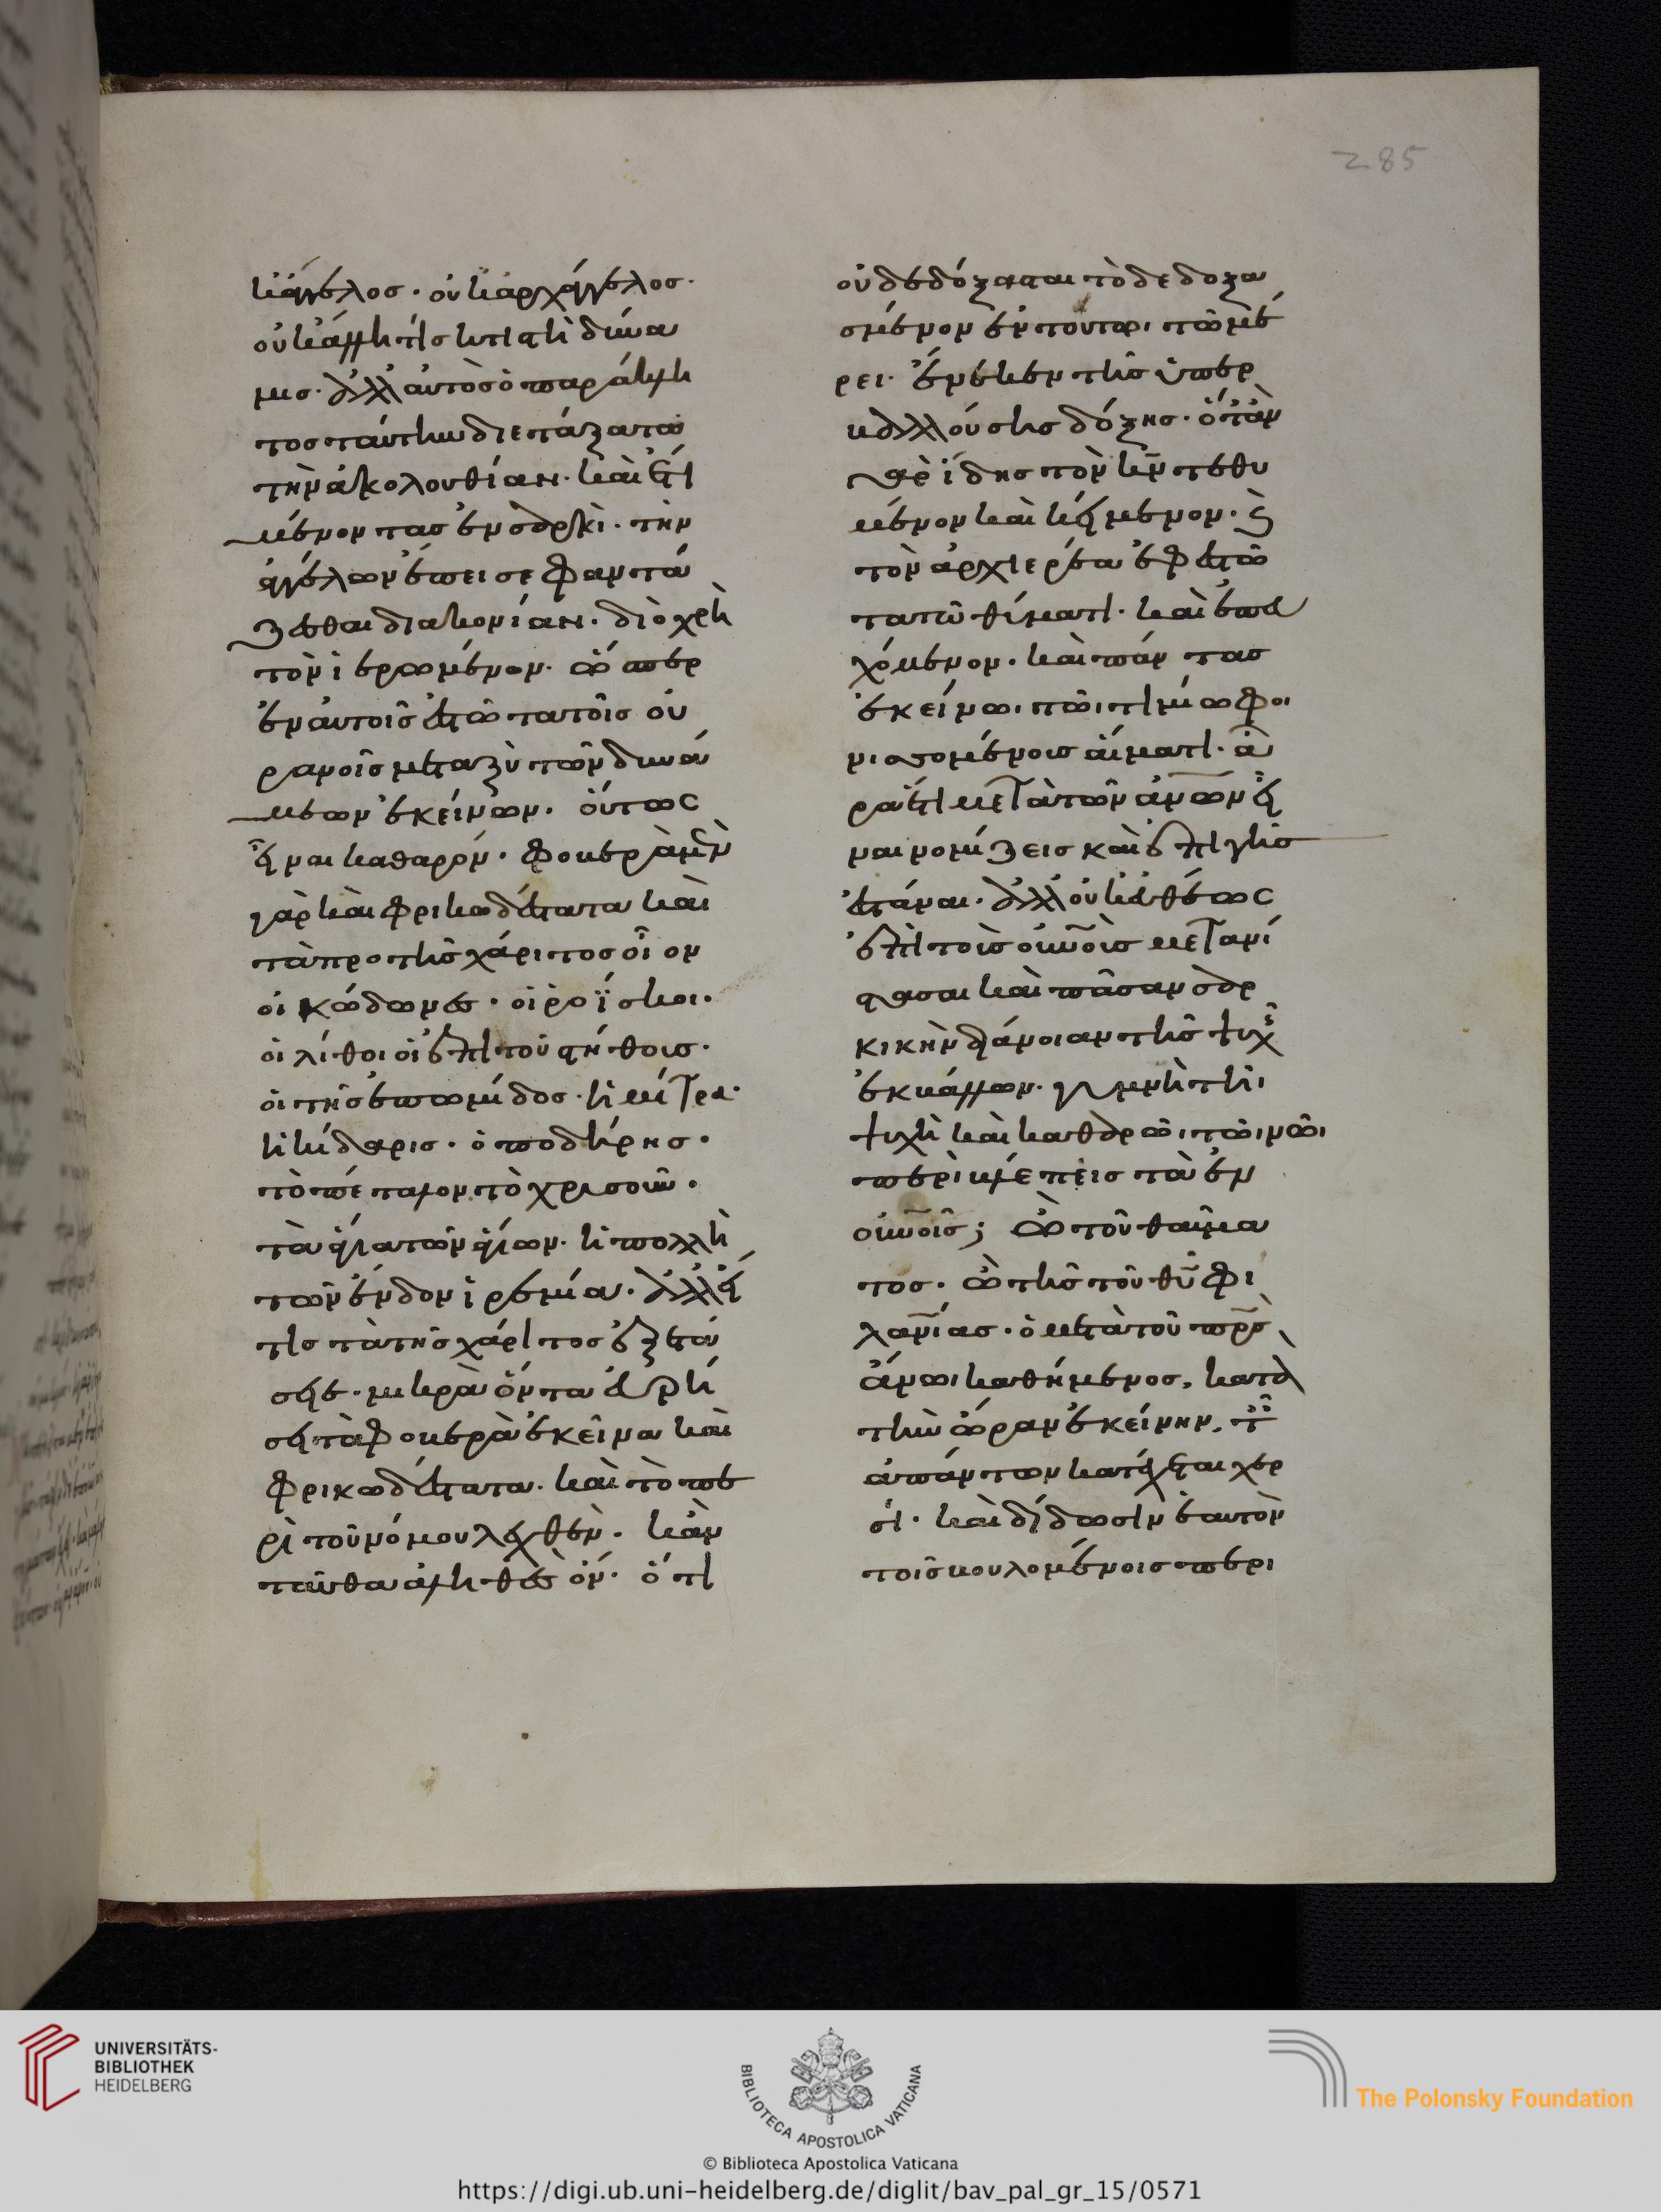 285
κ ἄγγελος· οὐκ ἀρχάγγελος·
οὐκ ἄλλη τίς κτιστὴ δύνα
μις· ἀλλ' αὐτὸς ὁ παράκλη
τος ταύτην διετάξατο
τὴν ἀκολουθίαν· καὶ ἔτι
μένοντας ἐν σαρκὶ· τὴν
ἀγγέλων ἔπεισε φαντά
ζεσθαι διακονίαν· διὸ χρὴ
τὸν ἱερωμένον· ὥσπερ
ἐν αὐτοῖς ἑστῶτα τοῖς οὐ
ρανοῖς μεταξὺ τῶν δυνά
μεων ἐκείνων· οὕτως
εἶναι καθαρόν· φοβερὰ μὲν
γὰρ καὶ φρικωδέστατα καὶ
τὰ πρὸ τῆς χάριτος οἷον
οἱ κώδωνες· οἱ ροΐσκοι·
οἱ λίθοι οἱ ἐπὶ τοῦ στήθους·
οἱ τῆς ἐπωμίδος· ἡ μίτρα·
ἡ κίδαρις· ὁ ποδήρης·
τὸ πέταλον τὸ χρυσοῦν·
τὰ ἅγια τῶν ἁγίων· ἡ πολλὴ
τῶν ἔνδον ἠρεμία· ἀλλ' εἴ
τις τὰ τῆς χάριτος ἐξετά
σειε· μικρὰ ὄντα εὑρή
σει τὰ φοβερὰ ἐκεῖνα καὶ
φρικωδέστατα· καὶ τὸ πε
ρὶ τοῦ νόμου λεχθὲν· κἀν
ταῦθα ἀληθὲς ὄν· ὅτι
οὐ δεδόξασται τὸ δεδοξα
σμένον ἐν τούτωι τῶ μέ
ρει· ἕνεκεν τῆς ὑπερ
βαλλούσης δόξης· ὅταν
γὰρ ἴδης τὸν κν τεθυ
μένον καὶ κείμενον· καὶ
τὸν ἀρχιερέα ἐφεστῶ
τα τῶ θύματι· καὶ ἐπευ
χόμενον· καὶ πάντας
ἐκείνωι τῶι τιμίω φοι
νισσομένους αἵματι· ἆ
ρα ἔτι μετὰ τῶν ἀνων εἶ
ναι νομίζεις καὶ ἐπὶ γῆς
ἑστάναι· ἀλλ' οὐκ εὐθέως
ἐπὶ τοὺς οὐνοὺς μετανί
στασαι καὶ πᾶσαν σαρ
κικὴν διάνοιαν τῆς ψυχῆς
ἐκβάλλων· γυμνῆ τῆι
ψυχῆ καὶ καθαρῶι τῶι νῶι
περιβλέπεις τὰ ἐν
οὐνοῖς; Ὢ τοῦ θαύμα
τος· ὢ τῆς τοῦ θυ φι
λανίας· ὁ μετὰ τοῦ πρς
ἄνωι καθήμενος, κατὰ
τὴν ὥραν ἐκείνην, ταῖς
ἁπάντων κατέχεται χερ
σί· καὶ δίδωσιν ἑαυτὸν
τοῖς βουλομένοις περι
UNIVERSITÄTS-
BIBLIOTHEK
HEIDELBERG
BIBLIOTECA APOSTOLICA VATICANA
The Polonsky Foundation
© Biblioteca Apostolica Vaticana
https://digi.ub.uni-heidelberg.de/diglit/bav_pal_gr_15/0571